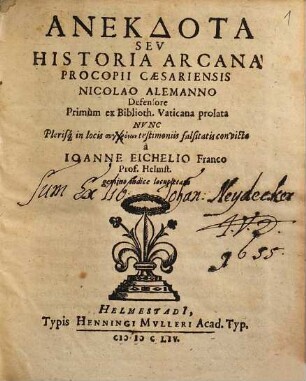 1
ΑΝΕΚΔΟΤΑ
SEV
HISTORIA ARCANA
PROCOPII CÆSARIENSIS
NICOLAO ALEMANNO
Defensore
Primùm ex Biblioth. Vaticana prolata
NVNC
Plerisq; in locis testimoniis falsitatis convicta
â
IOANNE EICHELIO Franco
Prof. Helmst.
Sum Ex Johan: Neydecker
1655.
HELMESTADI,
Typis HENNINGI MVLLERI Acad. Typ.
CIↃ IↃ C LIV.